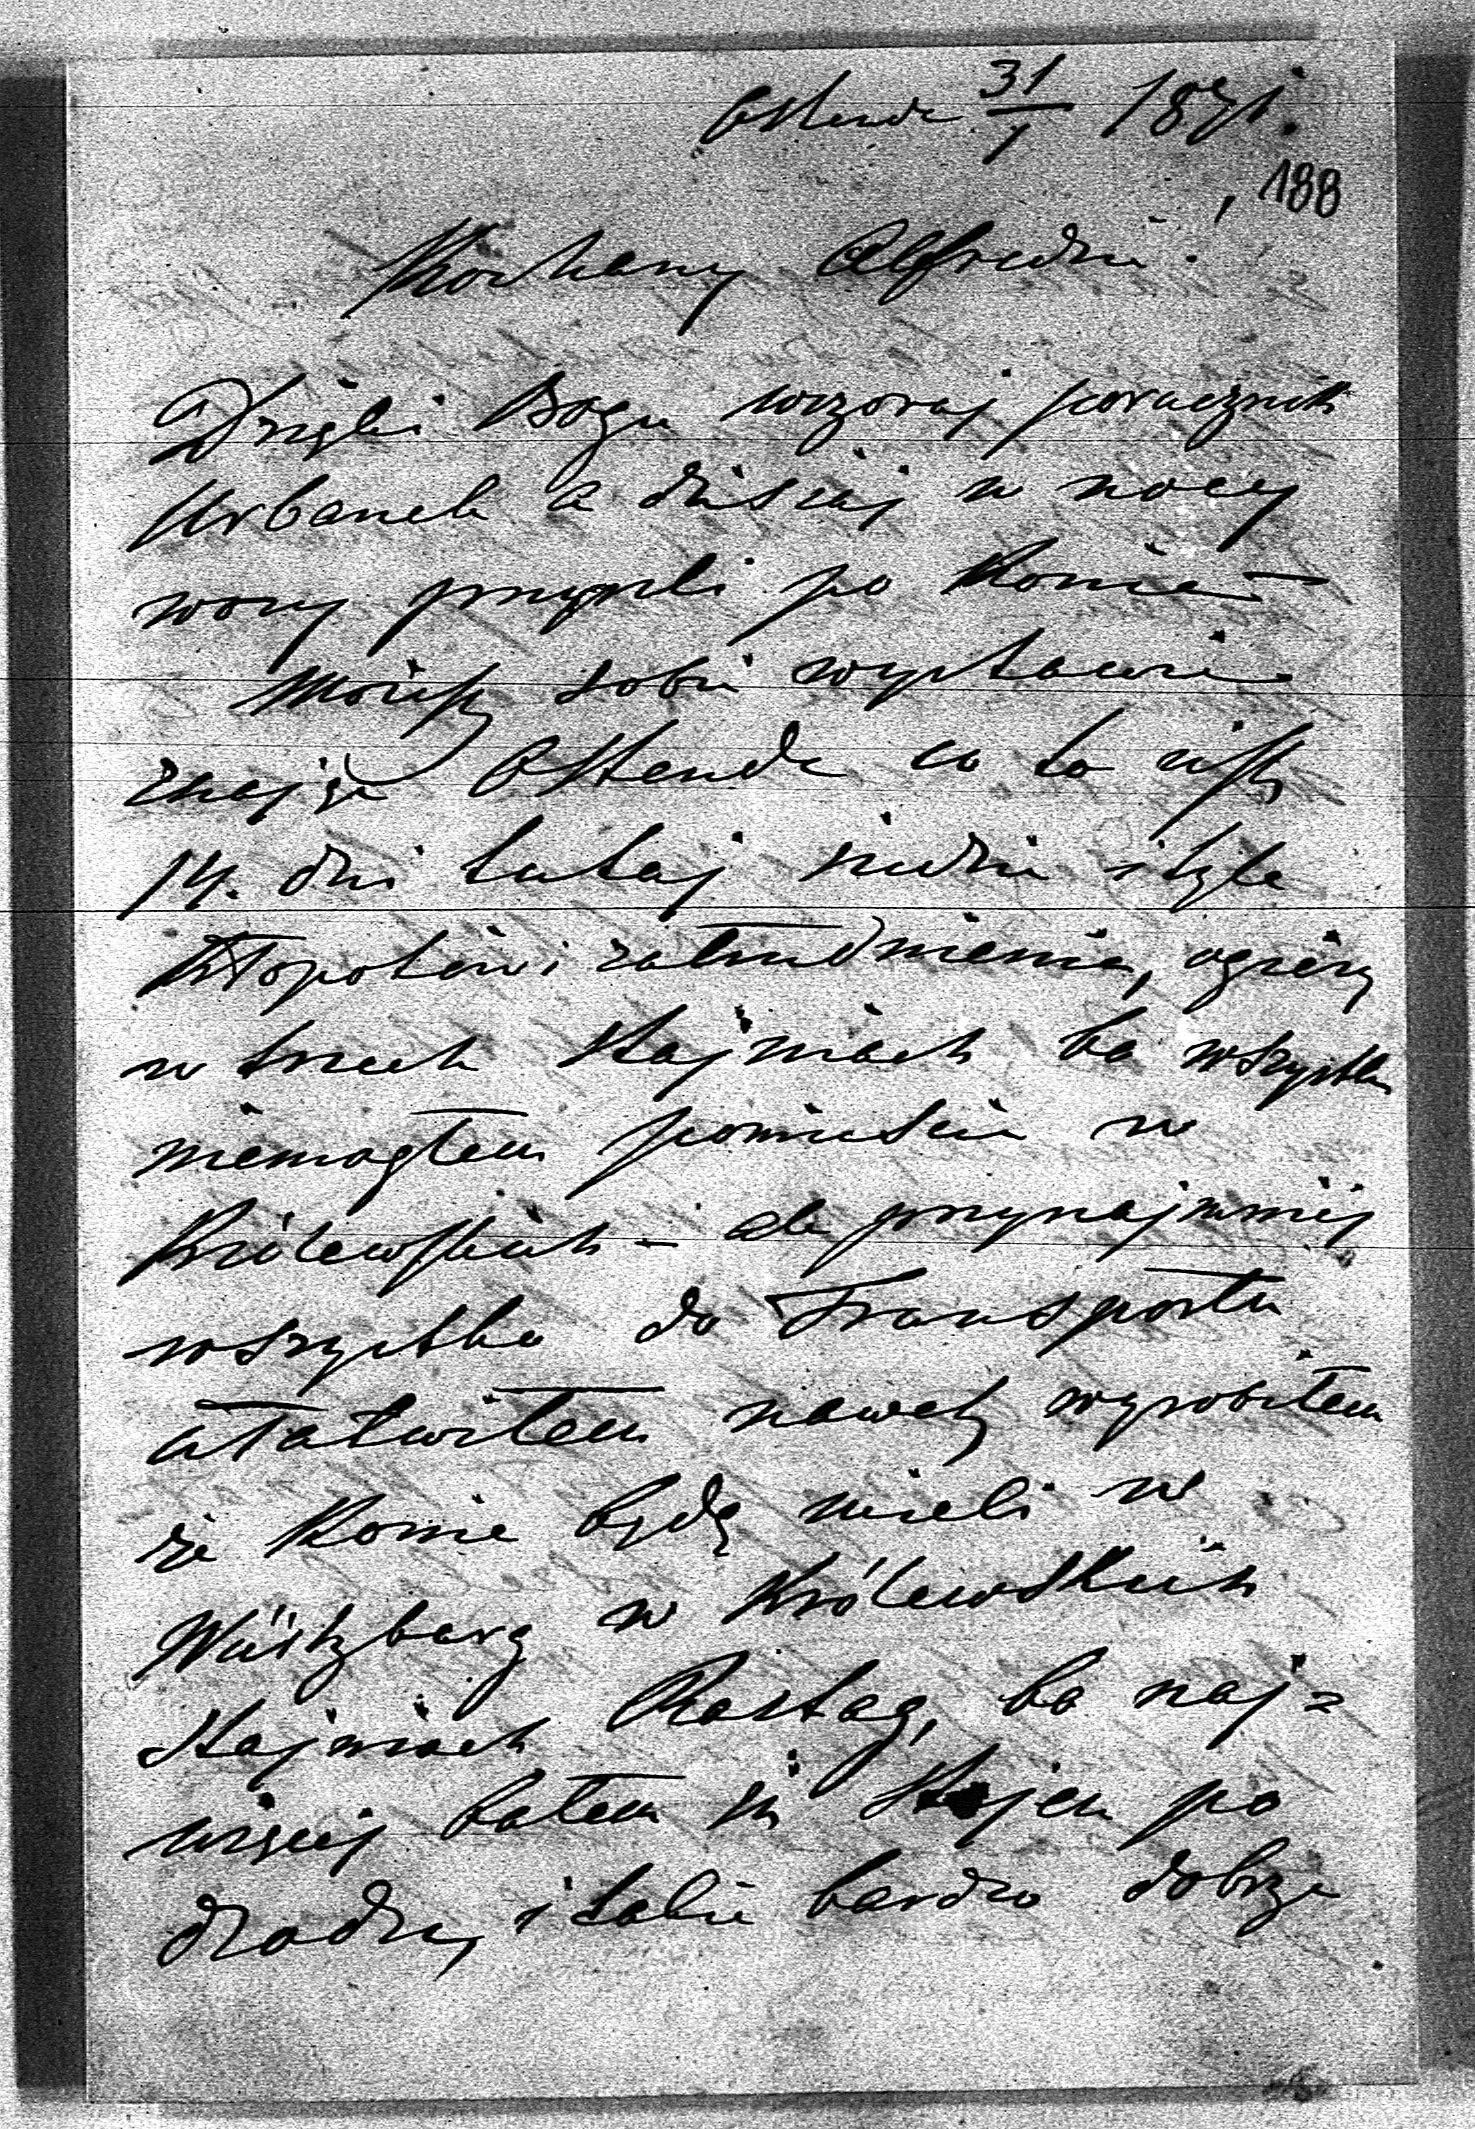 Ostende 31/1 1871.
188
Kochany Alfredzie!
Dzięki Bogu wczoraj porucznik
Urbanek a dzisiaj w nocy
wozy przyszli po Konie –
Możesz sobie wystawić
znając Ostende co to jest
14. dni tutaj siedzieć i tyle
Kłopotów i zatrudnienia, ogiery
w trzech stajniach bo wszystko
niemogłem pomieścić w
Królewskich – ale przynajmniej
wszystko do Transportu
ułatwiłem nawet wyrobiłem
że Konie będą mieli w
Würtzburg w Królewskich
stajniach Rasttag, bo naj=
więcej bałem się stajen po
drodze, i takie bardzo dobrze